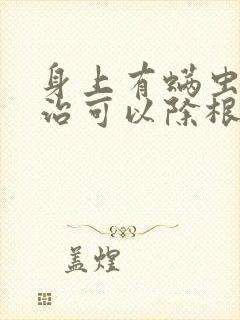 身上有螨虫
治可以除根
盖煌